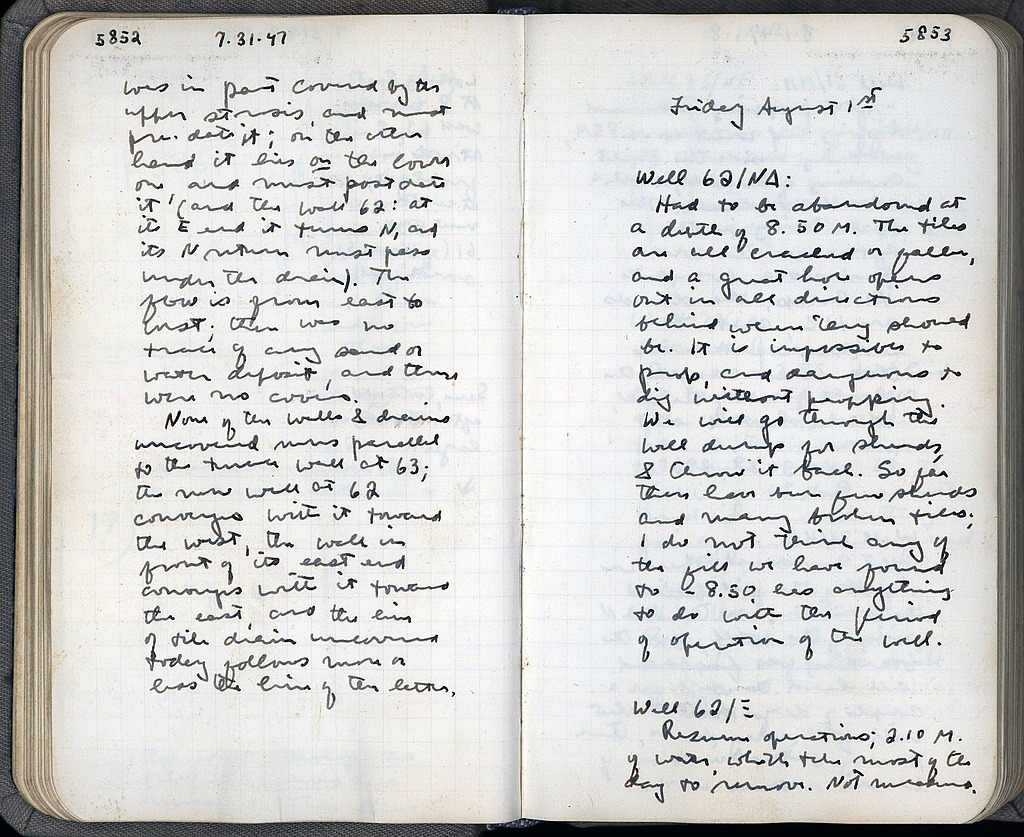 5852 7.31.47
was in part covered by the
upper strosis, and must
pre-date it; on the other
hand it lies on the lower
one, and must postdate
it (and the wall 62: at
its E end it turns N, and
its N return must pass
under the drain). The
flow is from east to
west; there was no
trace of any sand or
water deposit, and there
were no covers.
None of the walls & drains
uncovered runs parallel
to the wall at 63;
the new wall at 62
converges with it toward
the west, the wall in
front of its east end
converges with it toward
the east, and the line
of tile drain uncovered
today follows more or
less the line of the latter.
5853
Friday August 1st
Well 62/ΝΔ:
Had to be abandoned at
a depth of 8.50 M. The tiles
are all cracked or fallen,
and a great hole opens
out in all directions
behind where they should
be. It is impossible to
prop, and dangerous to
dig without propping.
We will go through the
well dump for sherds,
& throw it back. So far
there have been few sherds
and many broken tiles;
I do not think any of
the fill we have found
to -8.50 has anything
to do with the period
of operation of the well.
Well 62/Ξ
Resume operations; 2.10 M.
of water which take most of the
day to remove. Not measured.